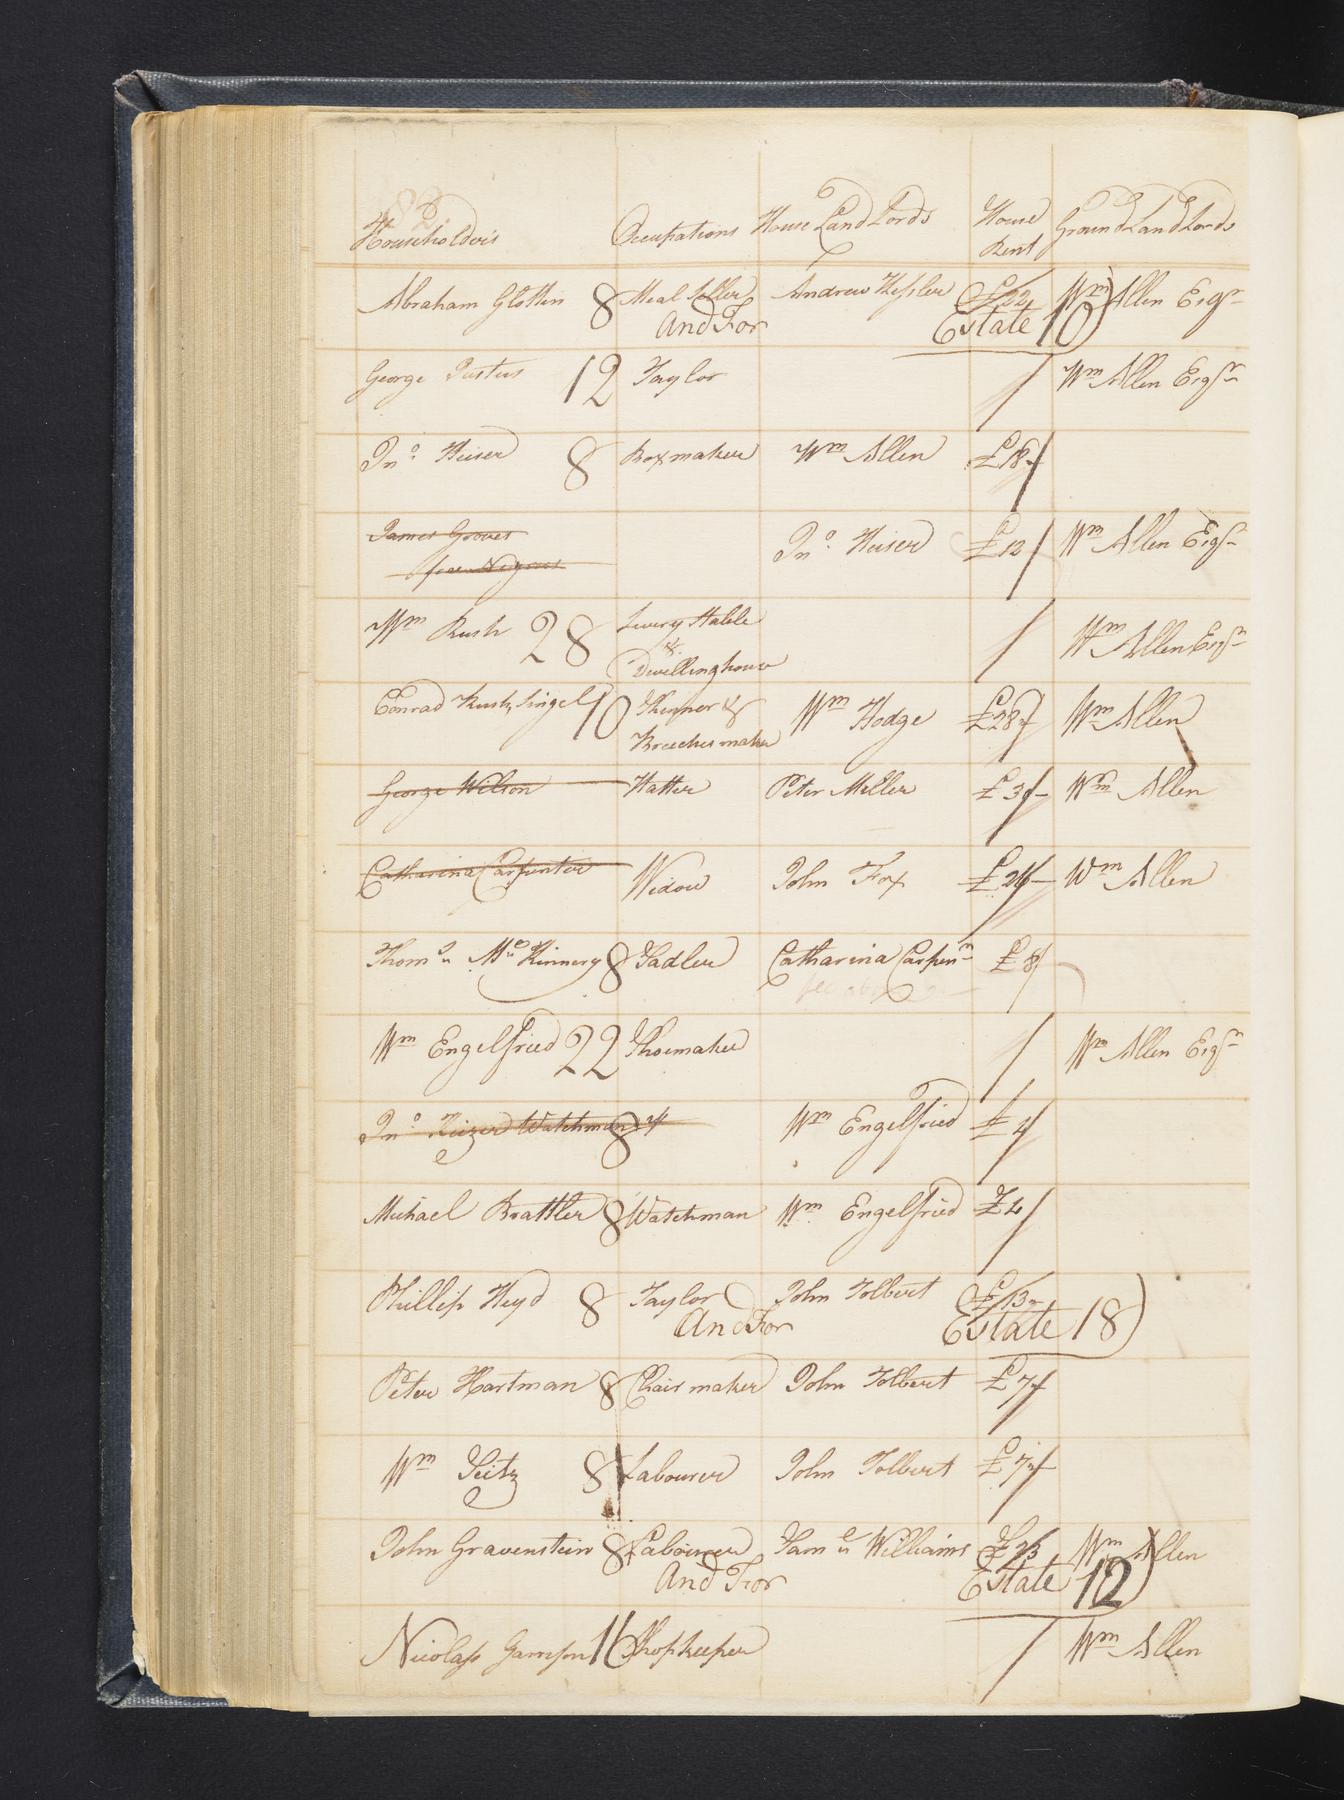 82
Householders Occupations House Land Lords House Rent Ground Land Lords
Abraham Glotten 8 Meal Seller Andrew Hessler £22 Wm Allen Esqr
And For Estate 10)
George Justus 12 Taylor / Wm Allen Esqr
Jno. Heiser 8 Boxmaker Wm Allen £18
James Groves Jno. Heiser £12 Wm Allen Esqr
free Negroes
Wm Rush 28 Livery Stable / Wm Allen Esqr
&
Dwellinghouse
Conrad Rush, Singel 10 Skinner & Wm Hodge £28 Wm Allen
Breeches maker
George Wilson Hatter Peter Miller £30 Wm Allen
Catharina Carpenter Widow John Fox £26 Wm Allen
Thoms. Mc Kinnery 8 Sadler Catharina Carpenr £8
see above
Wm Engelfried 22 Shoemaker / Wm Allen Esqr
Jno. Keizer Watchman 8 Wm Engelfried £4
Michael Brattler 8 Watchman Wm Engelfried £4
Phillip Heyd 8 Taylor John Tolbert £13
And For Estate 18)
Peter Hartman 8 Chair maker John Tolbert £7
Wm Seitz 8 Labourer John Tolbert £7
John Gravenstein 8 Labourer Saml. Williams £23 Wm Allen
And For Estate 12)
Nicolass 16 Shopkeeper / Wm Allen